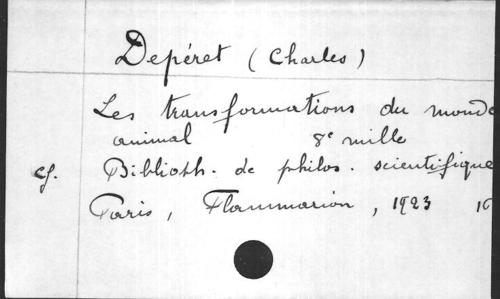 Depéret (Charles)
Les transformations du monde
animal 8e mille
cf. Biblioth. de philos. scientifique
Paris, Flammarion, 1923 16